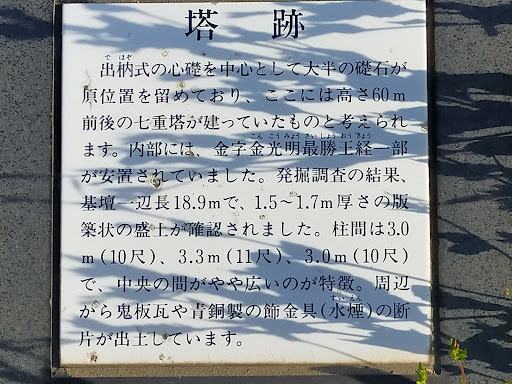 塔跡
出枘式の心礎を中心として大半の礎石が
原位置を留めており、ここには高さ60m
前後の七重塔が建っていたものと考えられ
ます。内部には、金字金光明最勝王経一部
が安置されていました。発掘調査の結果、
基壇一辺長18.9mで、1.5~1.7m厚さの版
築状の盛土が確認されました。柱間は3.0
m(10尺)、3.3m(11尺)、3.0m(10尺)
で、中央の間がやや広いのが特徴。周辺
から鬼板瓦や青銅製の飾金具(水煙)の断
片が出土しています。